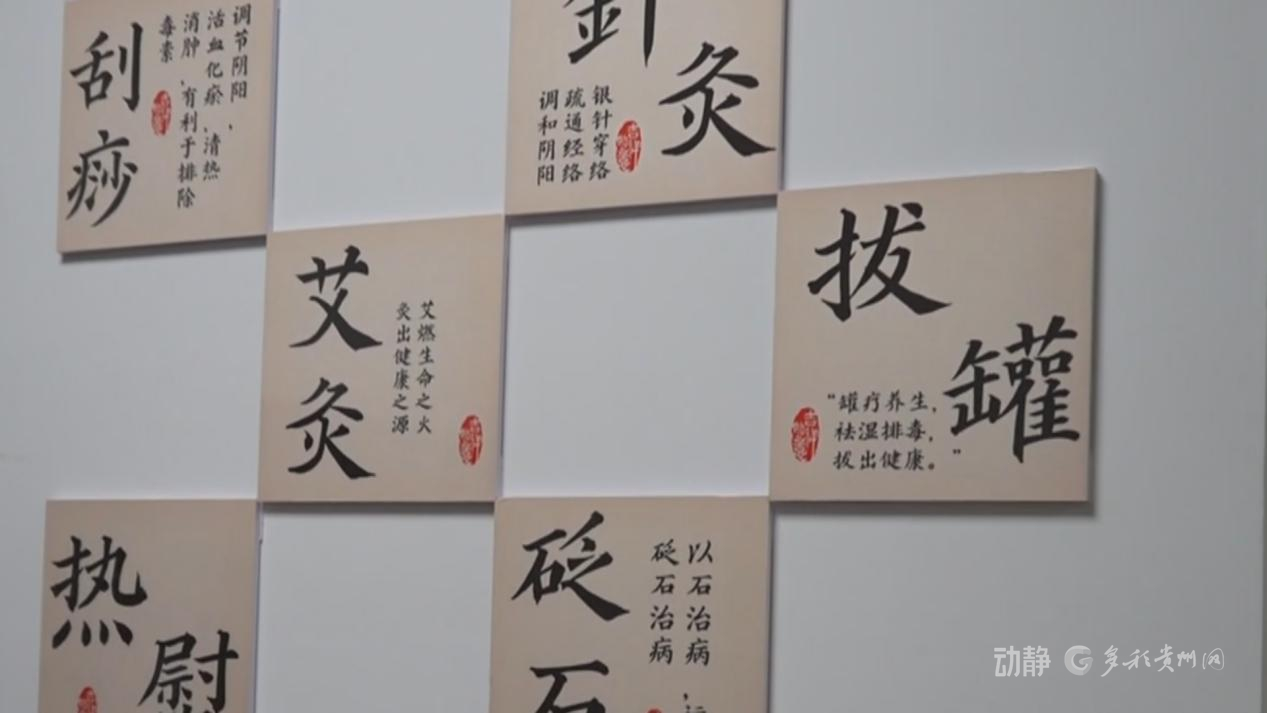 刮痧
调节阴阳，
活血化瘀，清热
消肿，有利于排除
毒素
針灸
银针穿络
疏通经络
调和阴阳
艾灸
艾燃生命之火
灸出健康之源
拔罐
“罐疗养生，
祛湿排毒，
拔出健康。”
热
砭石
以石治病
砭石治病
动静 多彩贵州网